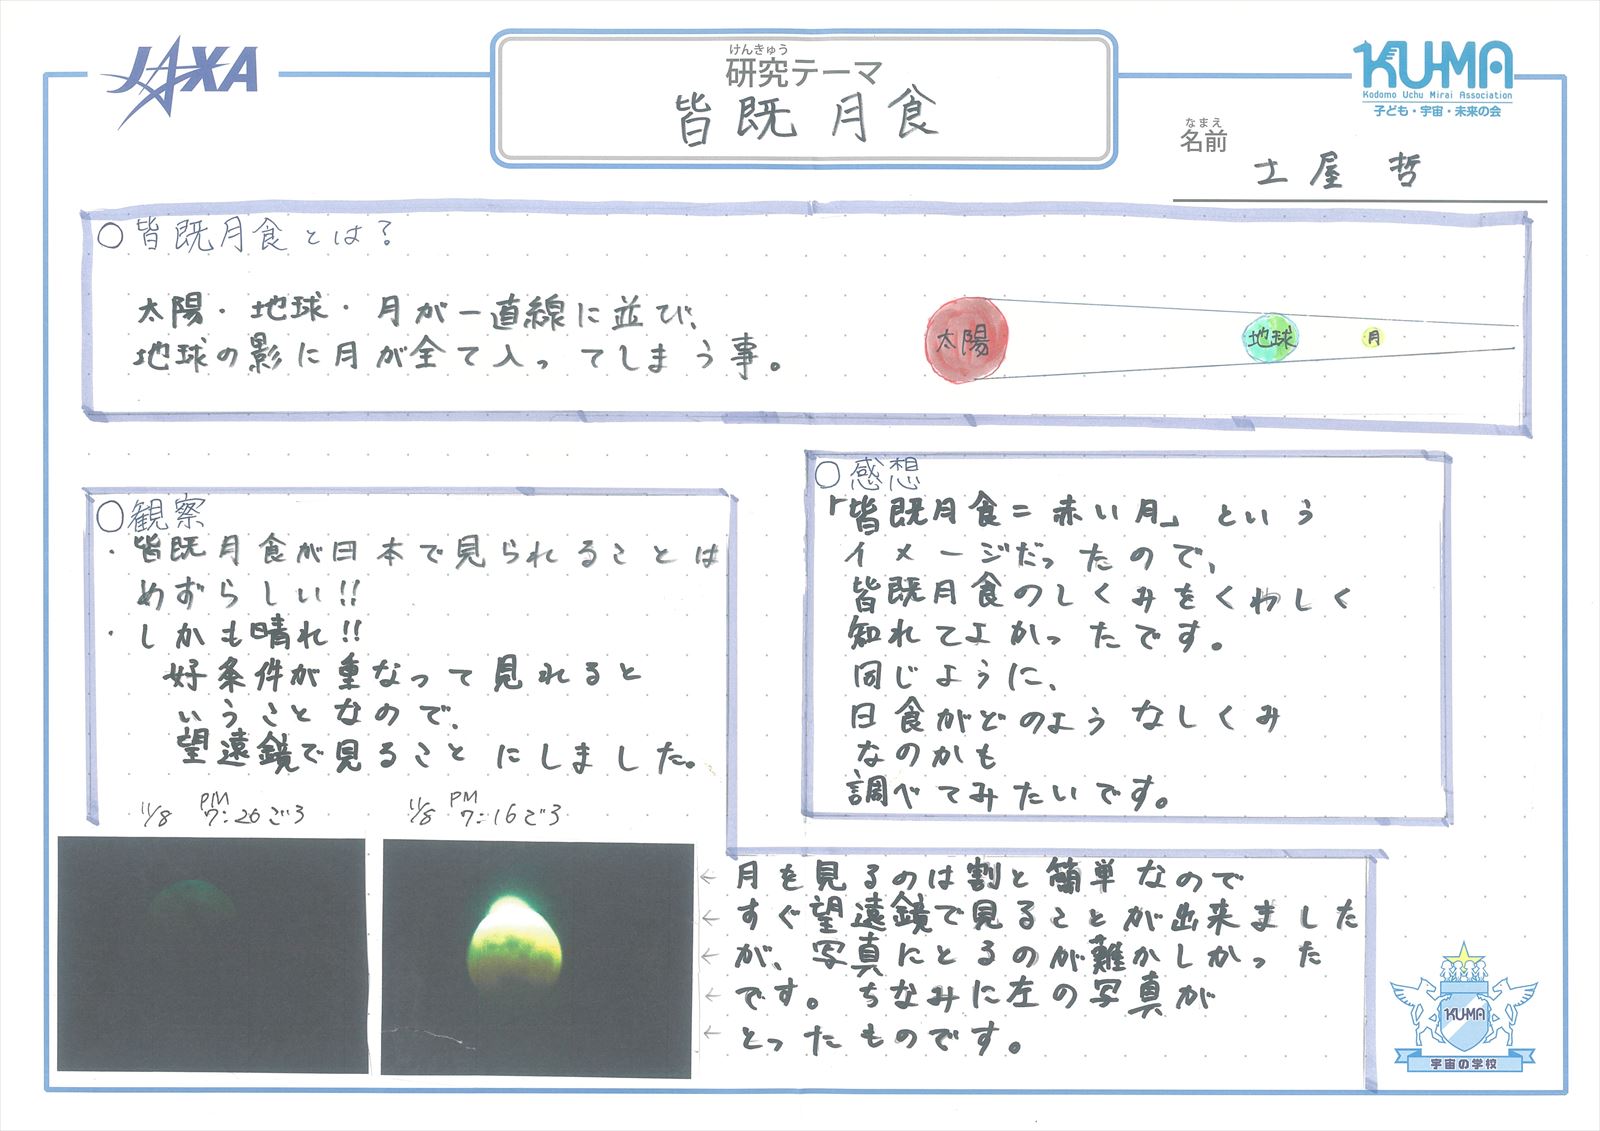 JAXA
けんきゅう
研究テーマ
皆既月食
KU-MA
Kodomo Uchu Mirai Association
子ども・宇宙・未来の会
なまえ
名前
土屋 哲
○皆既月食とは?
太陽・地球・月が一直線に並び、
地球の影に月が全て入ってしまう事。
太陽
地球
月
○観察
・皆既月食が日本で見られることは
めずらしい!!
・しかも晴れ!!
好条件が重なって見れると
いうことなので、
望遠鏡で見ることにしました。
11/8 PM 7:26ごろ
11/8 PM 7:16ごろ
○感想
「皆既月食=赤い月」という
イメージだったので、
皆既月食のしくみをくわしく
知れてよかったです。
同じように、
日食がどのようなしくみ
なのかも
調べてみたいです。
←月を見るのは割と簡単なので
←すぐ望遠鏡で見ることが出来ました
←が、写真にとるのが難かしかった
←です。ちなみに左の写真が
←とったものです。
KU-MA
宇宙の学校